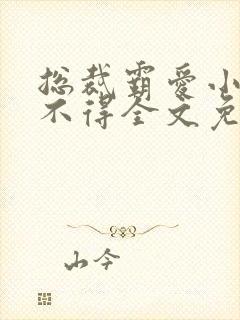 总裁霸爱小
不得全文免
山今